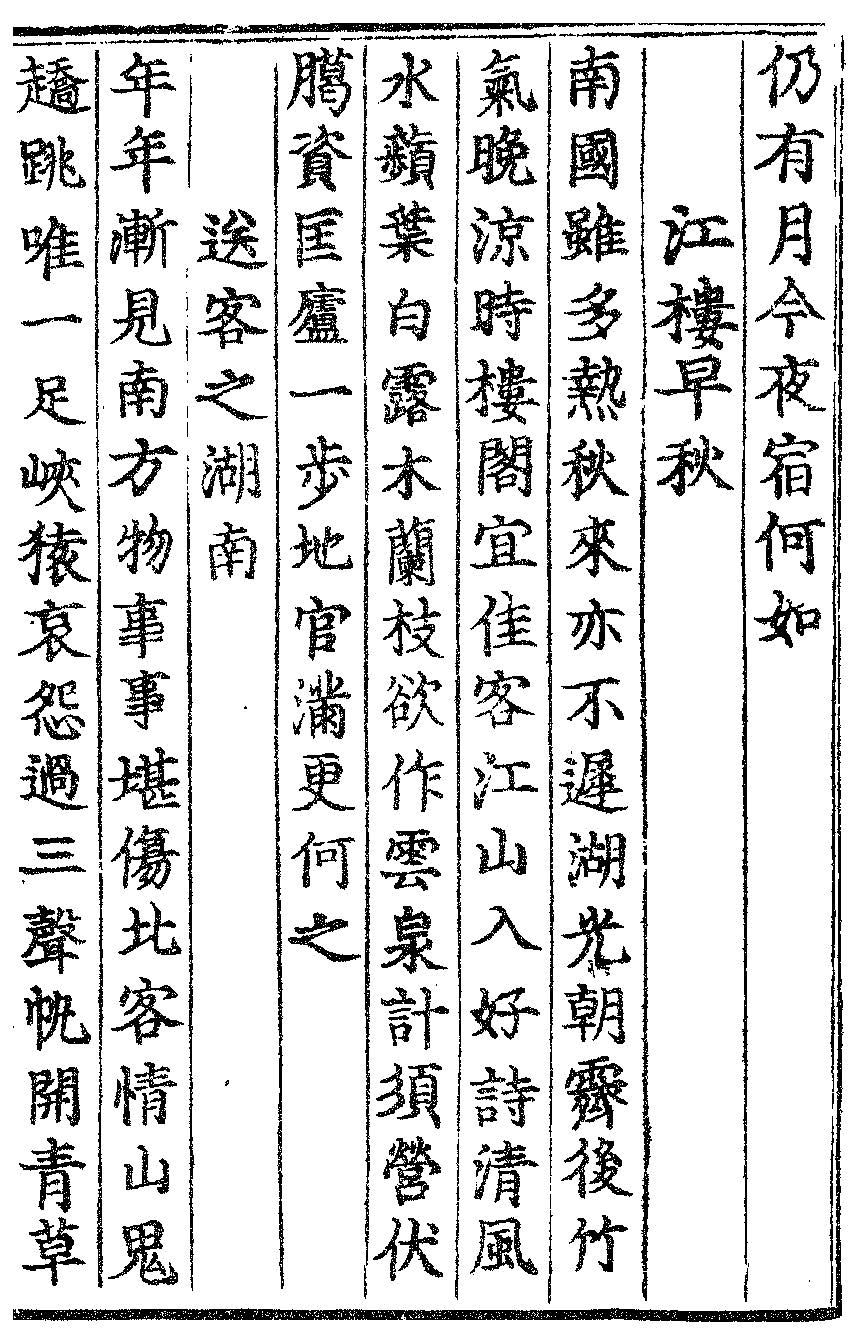 仍有月今夜宿何如
江樓早秋
南國雖多熱秋來亦不遲湖光朝霽後竹
氣晚涼時樓閣宜佳客江山入好詩清風
水蘋葉白露木蘭枝欲作雲泉計須營伏
臈資匡廬一步地官滿更何之
送客之湖南
年年漸見南方物事事堪傷北客情山鬼
趫跳唯一足峽猿哀怨過三聲帆開青草